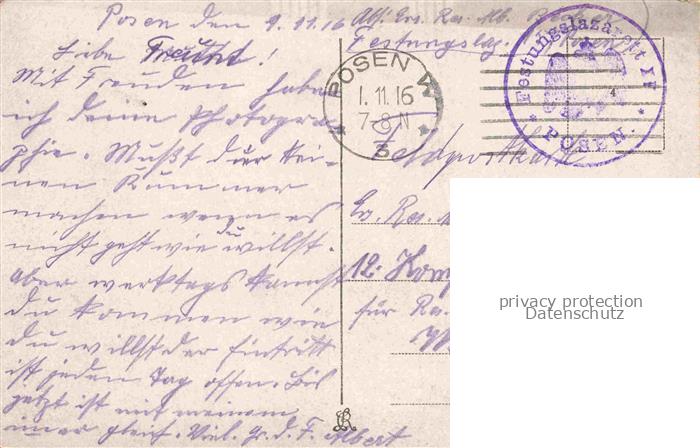 Posen den 9.11.16
Liebe Freund.
Mit Freuden habe
ich deine Photogra-
phie. Mußt dir kei-
nen Kummer
machen wenn es
nicht geht wie du willst.
Aber werktags kannst
du kommen wie
du willst der Eintritt
ist jeden Tag offen. Bis
jetzt ist mit meinem
immer gleich. Viel. Gr. d. F. Albert
Abs. Ers. Res.
Festungslaz. Posen
POSEN W
1.11.16
7-8 N
* 3 *
Festungslazarett II
* POSEN. *
Feldpostkarte
Er. Res.
12. Komp
für Re.
privacy protection
Datenschutz